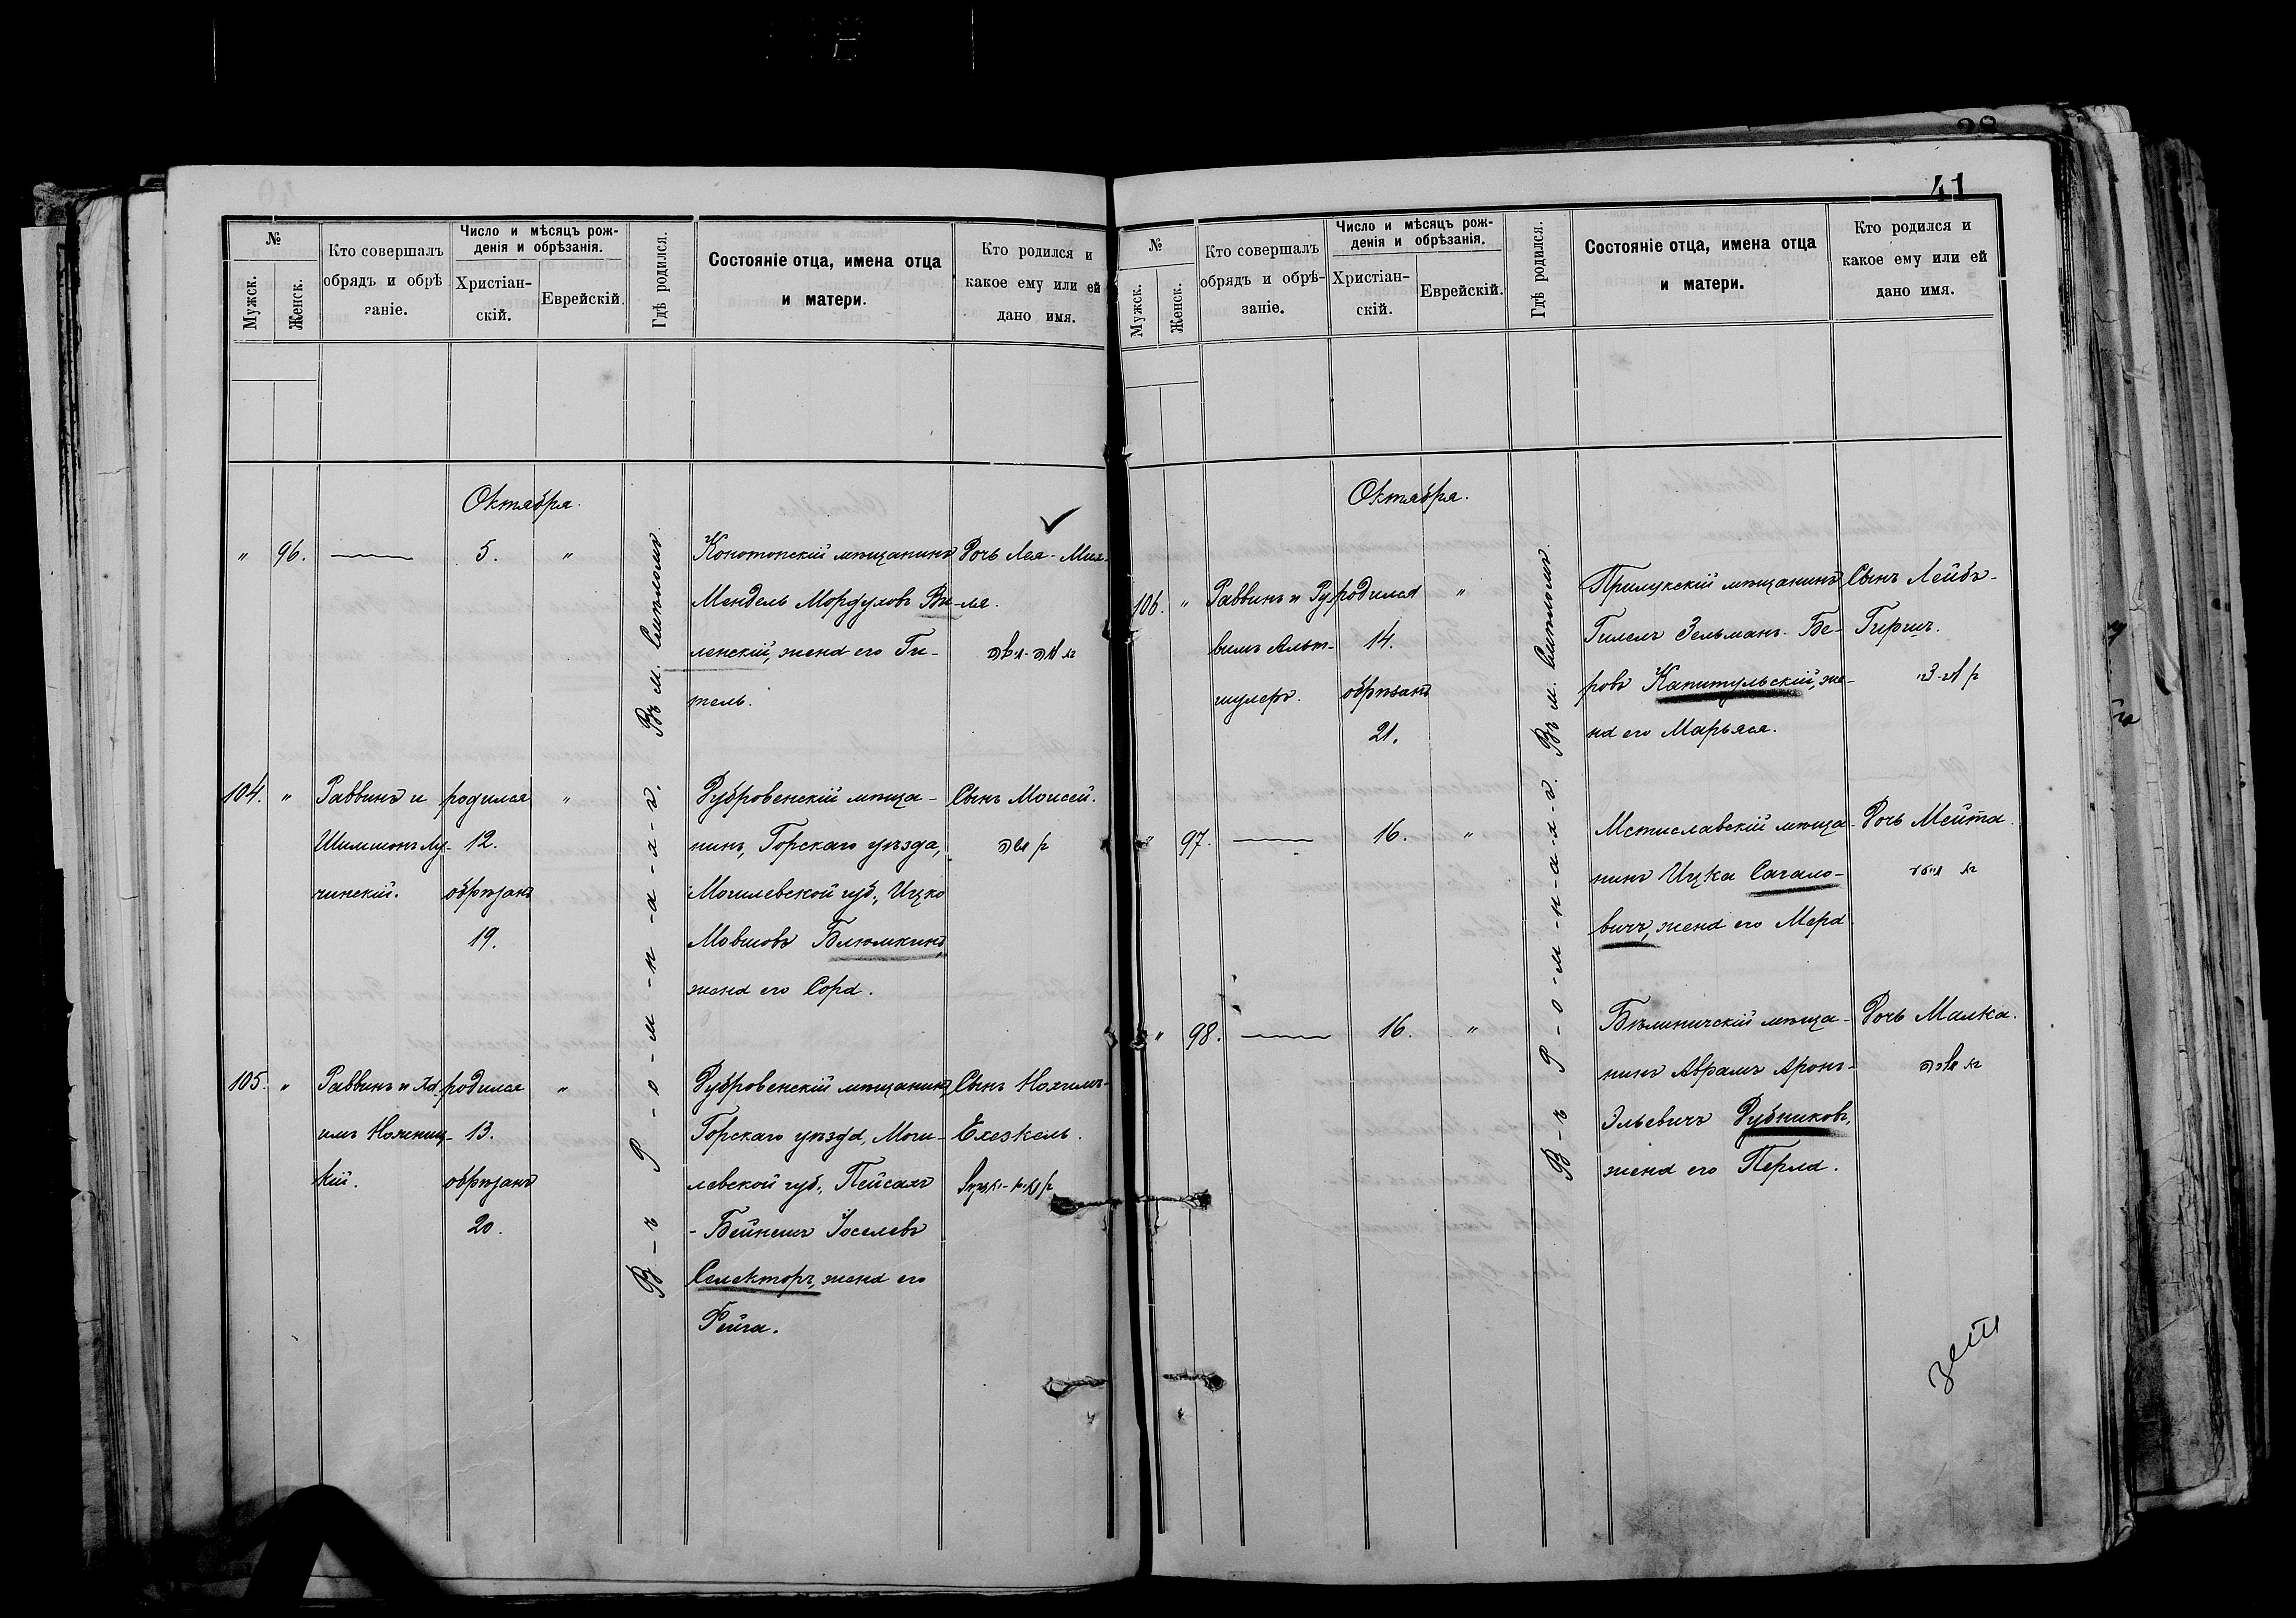 41
№
Мужск.
Женск.
Кто совершалъ
обрядъ и обрѣ
заніе.
Число и мѣсяцъ рож-
денія и обрѣзанія.
Христіан-
скій.
Еврейскій.
Гдѣ родился.
Состояніе отца, имена отца
и матери.
Кто родился и
какое ему или ей
дано имя.
Октября.
" 96. 5. "
Конотопскій мѣщанинъ
Мендель Мордуховъ Ви-
ленскій, жена его Ги-
тель.
Дочь Лея-Мих-
ля.
Въ м. Смѣломъ
Въ Ромнахъ.
104. "
Раввинъ и
Шимшонъ Лу-
чинскій.
родился
12.
обрѣзанъ
19.
"
Дубровенскій мѣща-
нинъ, Горскаго уѣзда,
Могилевской губ., Ицко
Мовшовъ Блюмкинъ,
жена его Сора.
Сынъ Моисей.
105. "
Раввинъ и Ха-
имъ
кій.
родился
13.
обрѣзанъ
20.
"
Дубровенскій мѣщанинъ,
Горскаго уѣзда, Моги-
левской губ., Пейсахъ
-Бейнешъ Іоселевъ
Селекторъ, жена его
Фейга.
Сынъ Нохимъ-
Ехезкель.
№
Мужск.
Женск.
Кто совершалъ
обрядъ и обрѣ-
заніе.
Число и мѣсяцъ рож-
денія и обрѣзанія.
Христіан-
скій.
Еврейскій.
Гдѣ родился.
Состояніе отца, имена отца
и матери.
Кто родился и
какое ему или ей
дано имя.
Октября.
106. "
Раввинъ и Ру-
вимъ Альт-
шулеръ.
родился
14.
обрѣзанъ
21.
"
Прилукскій мѣщанинъ
Гилелъ Зельманъ-Бе-
ровъ Капитульскій, же-
на его Марьяся.
Сынъ Лейбъ-
Гиршъ.
Въ м. Смѣломъ.
Въ Ромнахъ.
" 97. 16. "
Мстиславскій мѣща-
нинъ Ицка Сагало-
вичъ, жена его Мера
Дочь Мейта.
" 98. 16. "
Бѣлиничскій мѣща-
нинъ Абрамъ Аронъ-
Эльевичъ Дубниковъ,
жена его Перла.
Дочь Малка.